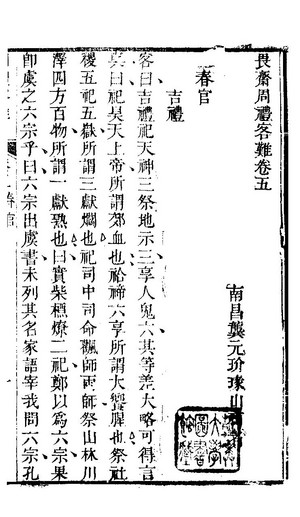 畏齋周禮客難卷五
南昌龔元玠瑑山
春官
吉禮
客曰吉禮祀天神三祭地示三享人鬼六其等差大略可得言
與曰祀昊天上帝所謂郊血也祫禘六享所謂大饗腥也祭社
稷五祀五嶽所謂三獻爓也祀司中司命飌師雨師祭山林川
澤四方百物所謂一獻熟也曰實柴槱燎二祀鄭以為六宗果
卽虞之六宗乎曰六宗出虞書未列其名家語宰我問六宗孔
春官